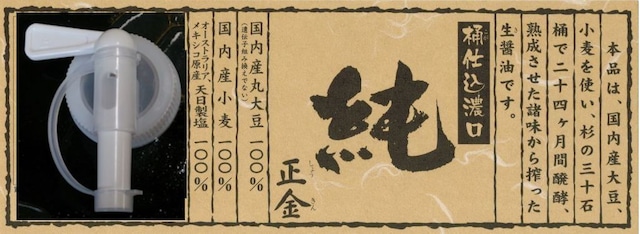 本品は、国内産大豆、
小麦を使い、杉の三十石
桶で二十四ヶ月間醗酵、
熟成させた諸味から搾った
生醤油です。
桶仕込濃口
こが
純
正金
しょうきん
国内産丸大豆 一〇〇%
(遺伝子組み換えでない)
国内産小麦 一〇〇%
オーストラリア、
メキシコ原産 天日製塩 一〇〇%